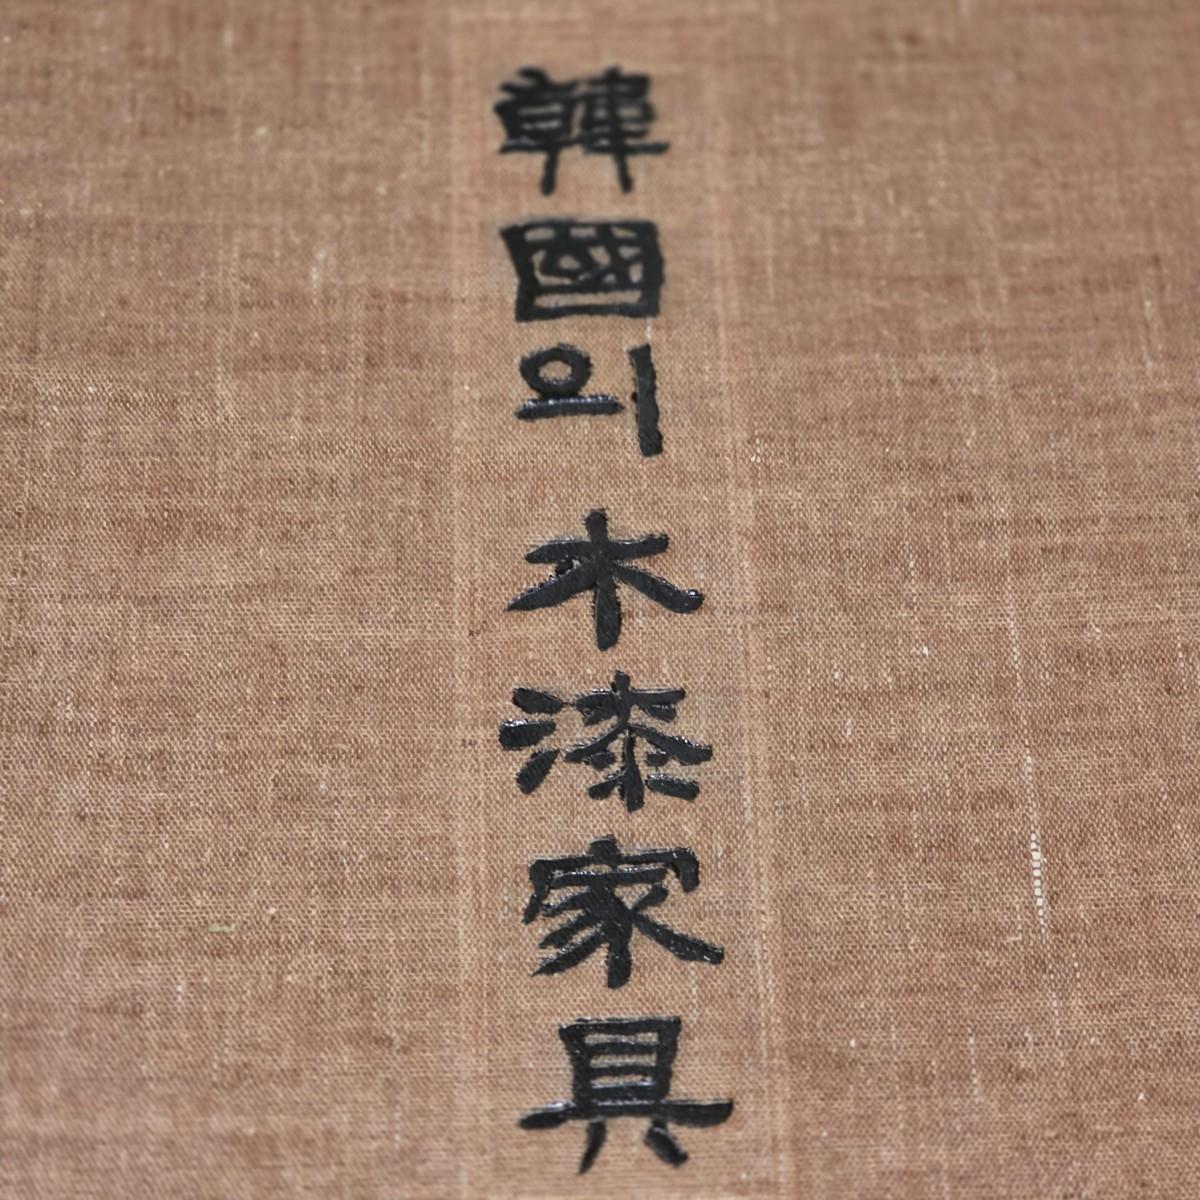 韓國의 木漆家具